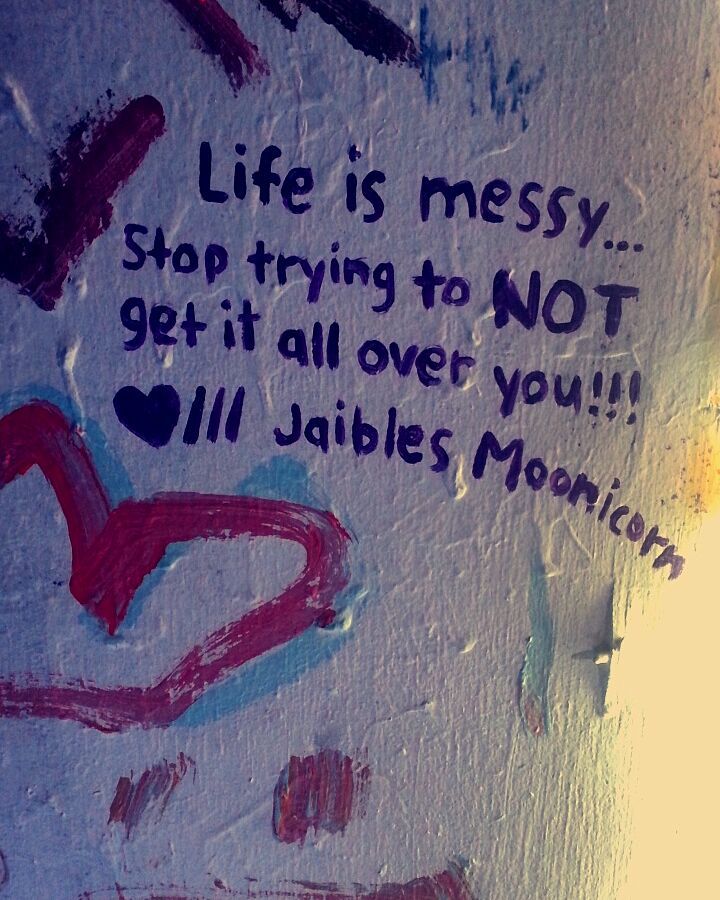 Life is messy...
Stop trying to NOT
get it all over you!!!
♥/// Jaibles Moonicorn